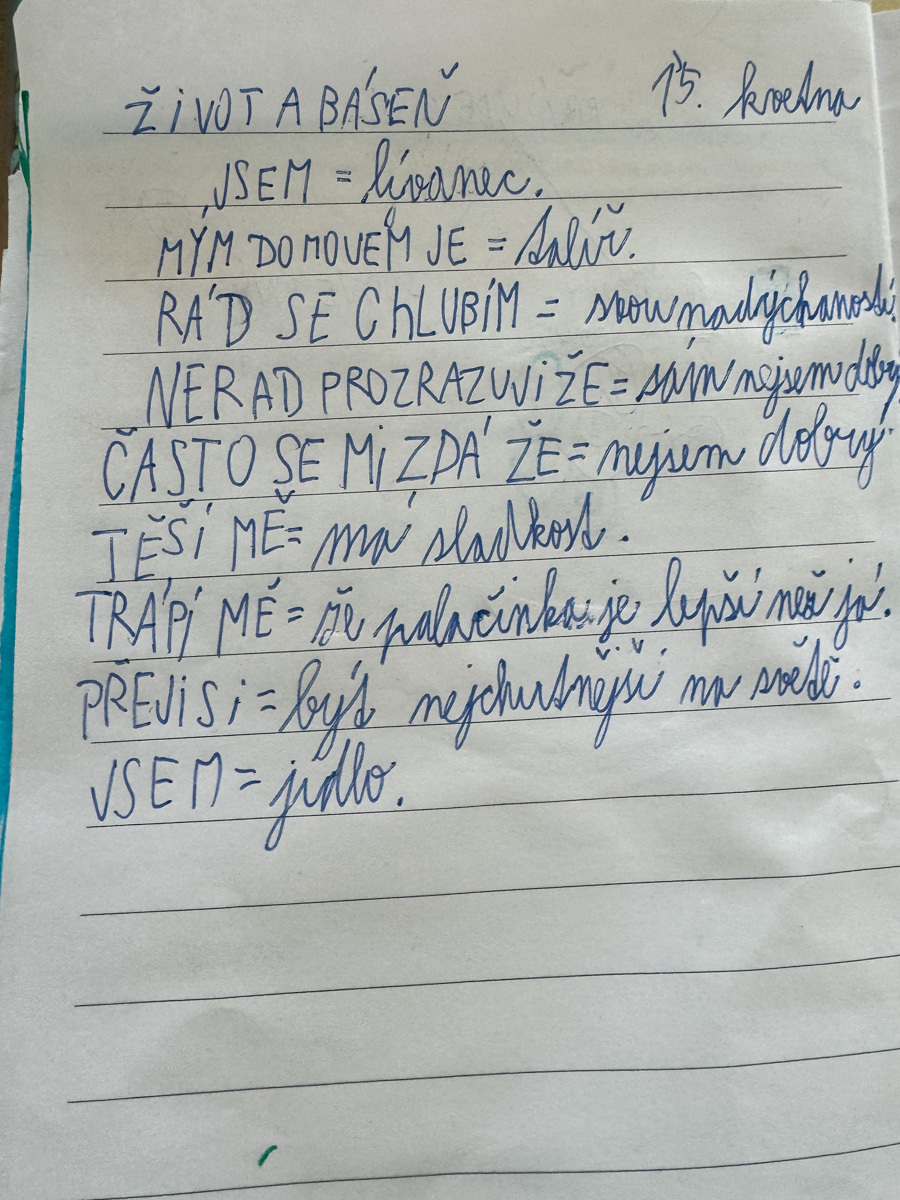 ŽiVOT A BÁSEŇ 15. května
JSEM = lívanec.
MÝM DOMOVEM JE = talíř.
RÁD SE ChLUBÍM = svou nadýchaností.
NERAD PROZRAZUJi ŽE = sám nejsem dobrý.
ČASTO SE Mi ZDÁ ŽE = nejsem dobrý.
TĚŠÍ MĚ = má sladkost.
TRÁPÍ MĚ = že palačinka je lepší než já.
PŘEJi Si = být nejchutnější na světě.
JSEM = jídlo.